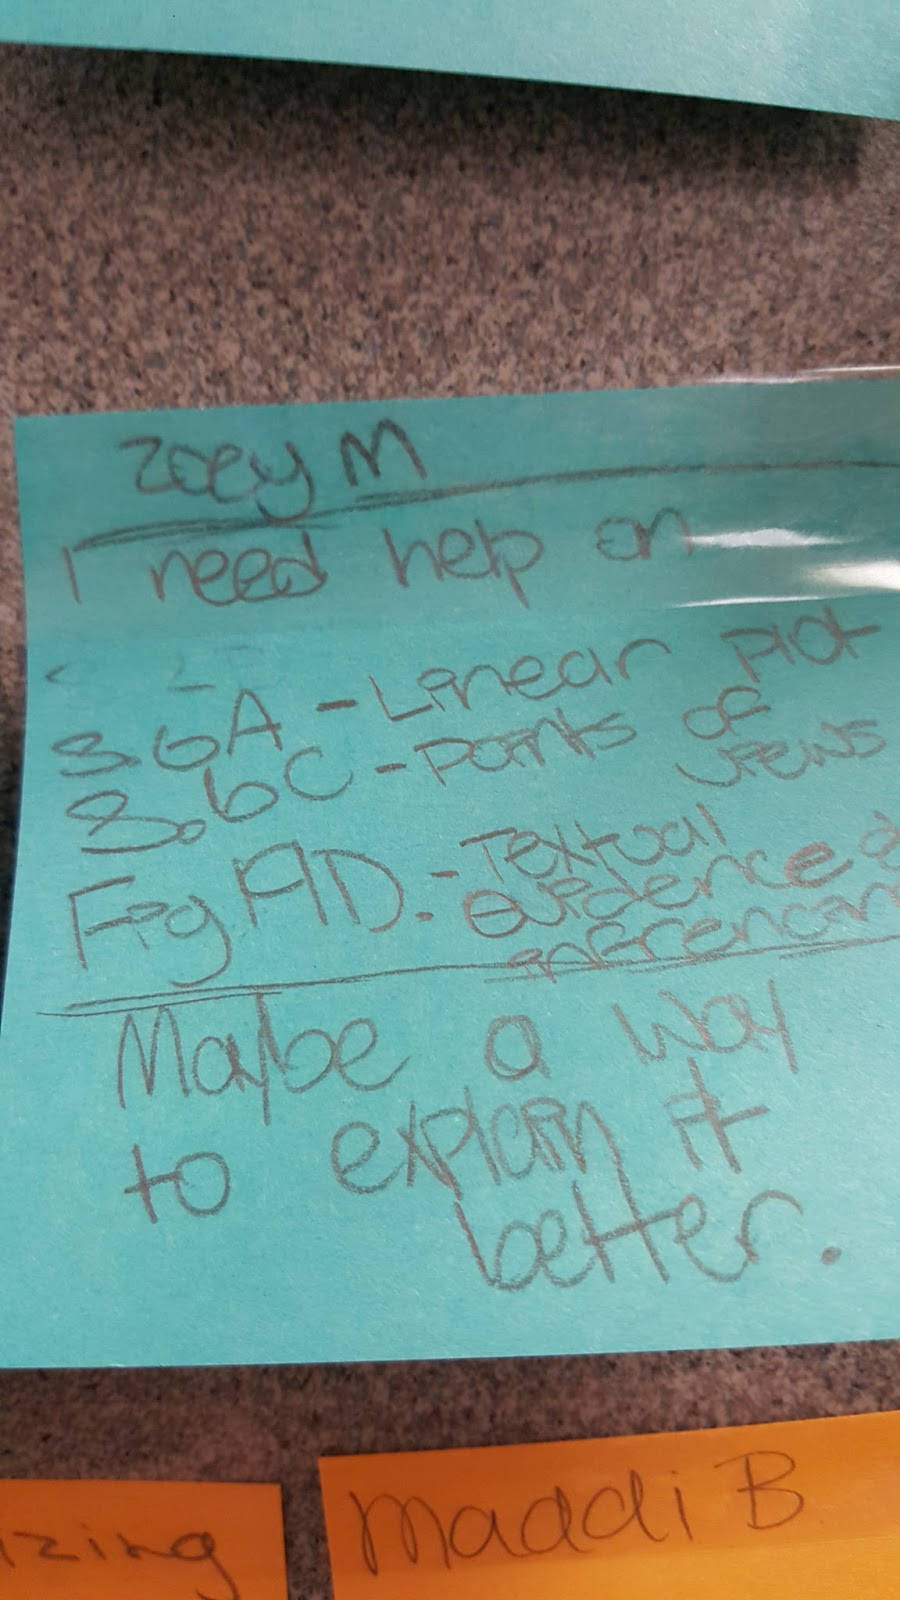 Zoey M
I need help on
8.6A - Linear Plot
8.6C - Points of
views
Fig 19D. - Textual
evidence &
infrencin
Maybe a way
to explain it
better.
izing
Maddi B